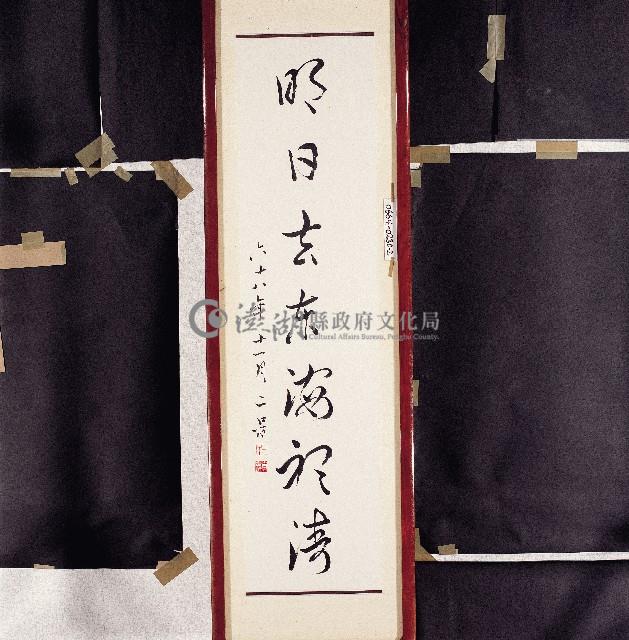 明日去東海視濤
六十八年十一月二呆
澎湖縣政府文化局
Cultural Affairs Bureau, Penghu County.